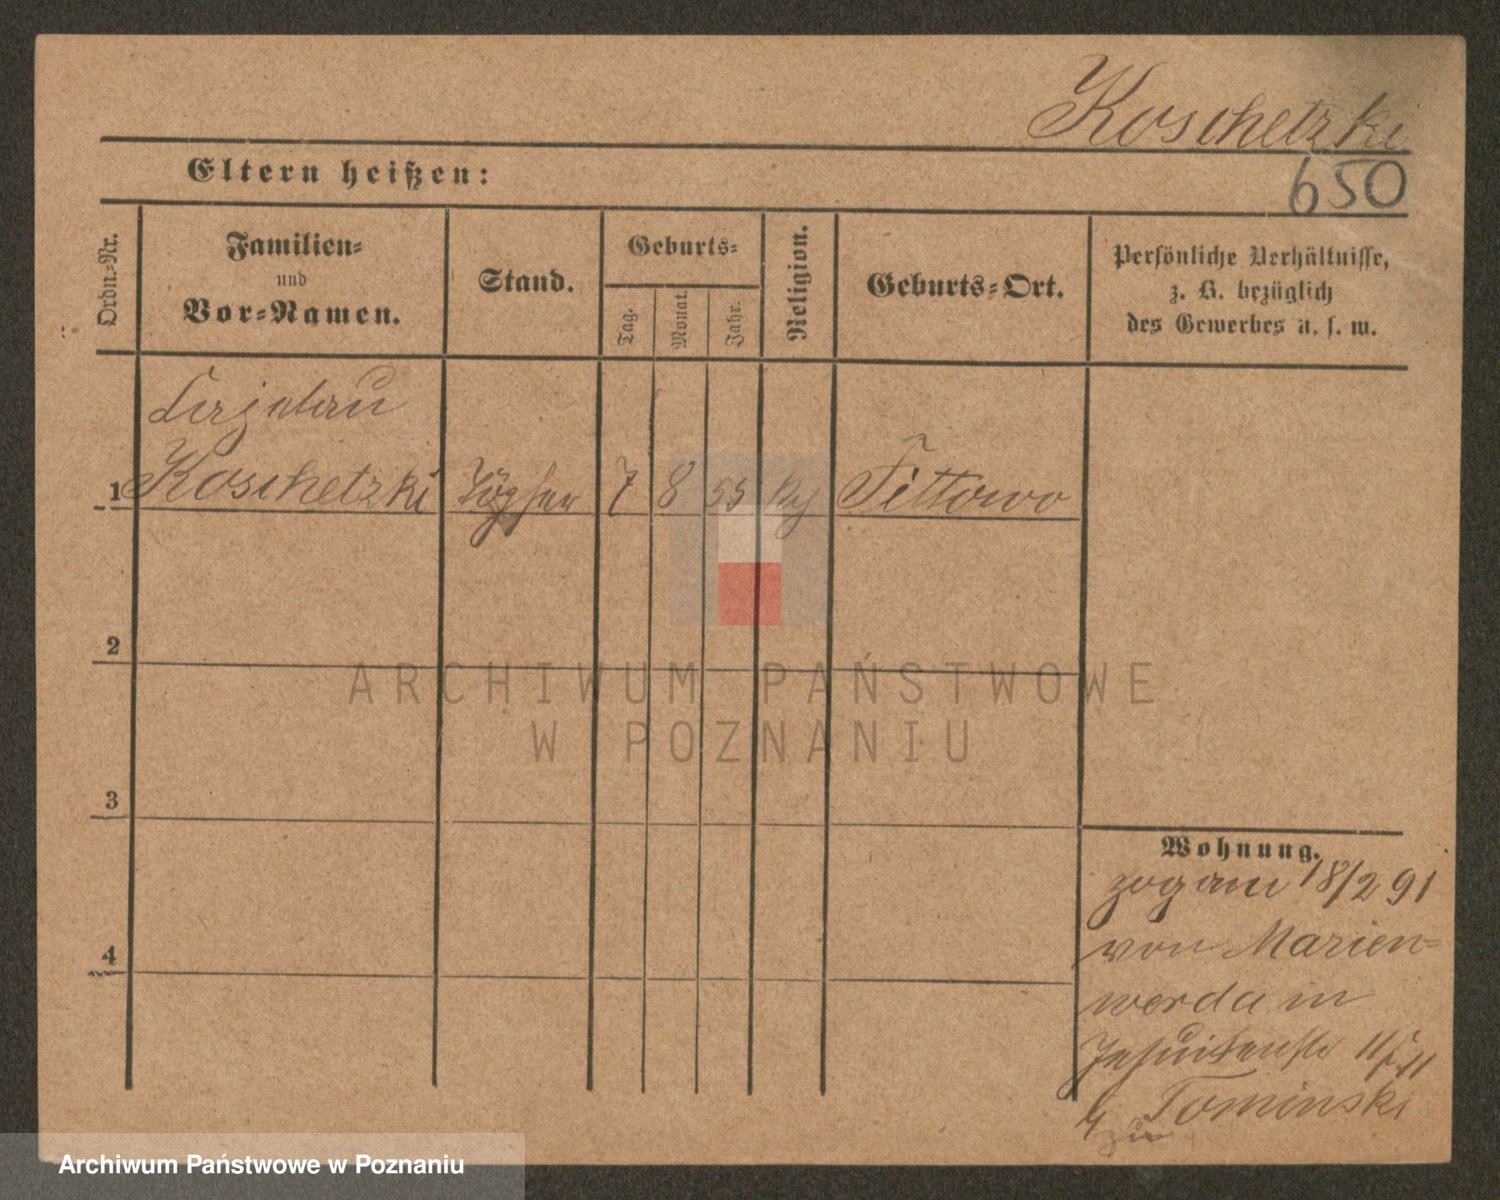 Koschetzki
650
Eltern heißen:
Ordn.-Nr.
Familien-
und
Vor-Namen.
Stand.
Geburts-
Tag.
Monat.
Jahr.
Religion.
Geburts-Ort.
Persönliche Verhältnisse,
z. B. bezüglich
des Gewerbes u. s. w.
1 Koschetzki 7 8 55 Tittowo
2
3
4
Wohnung.
zog am 18/2 91
von Marien-
werda in
Jesuitenstr 11
Tominski
ARCHIWUM PAŃSTWOWE
W POZNANIU
Archiwum Państwowe w Poznaniu